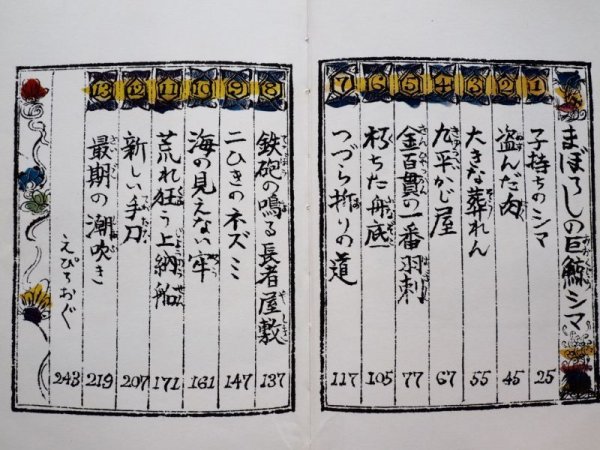 まぼろしの巨鯨シマ
1 子持ちのシマ 25
2 盗んだ肉 45
3 大きな葬れん 55
4 九平かじ屋 67
5 金百貫の一番羽刺 77
6 朽ちた舟底 105
7 つづら折りの道 117
8 鉄砲の鳴る長者屋敷 137
9 二ひきのネズミ 147
10 海の見えない牢 161
11 荒れ狂う上納船 171
12 新しい手刀 207
13 最期の潮吹き 219
えぴろおぐ 243